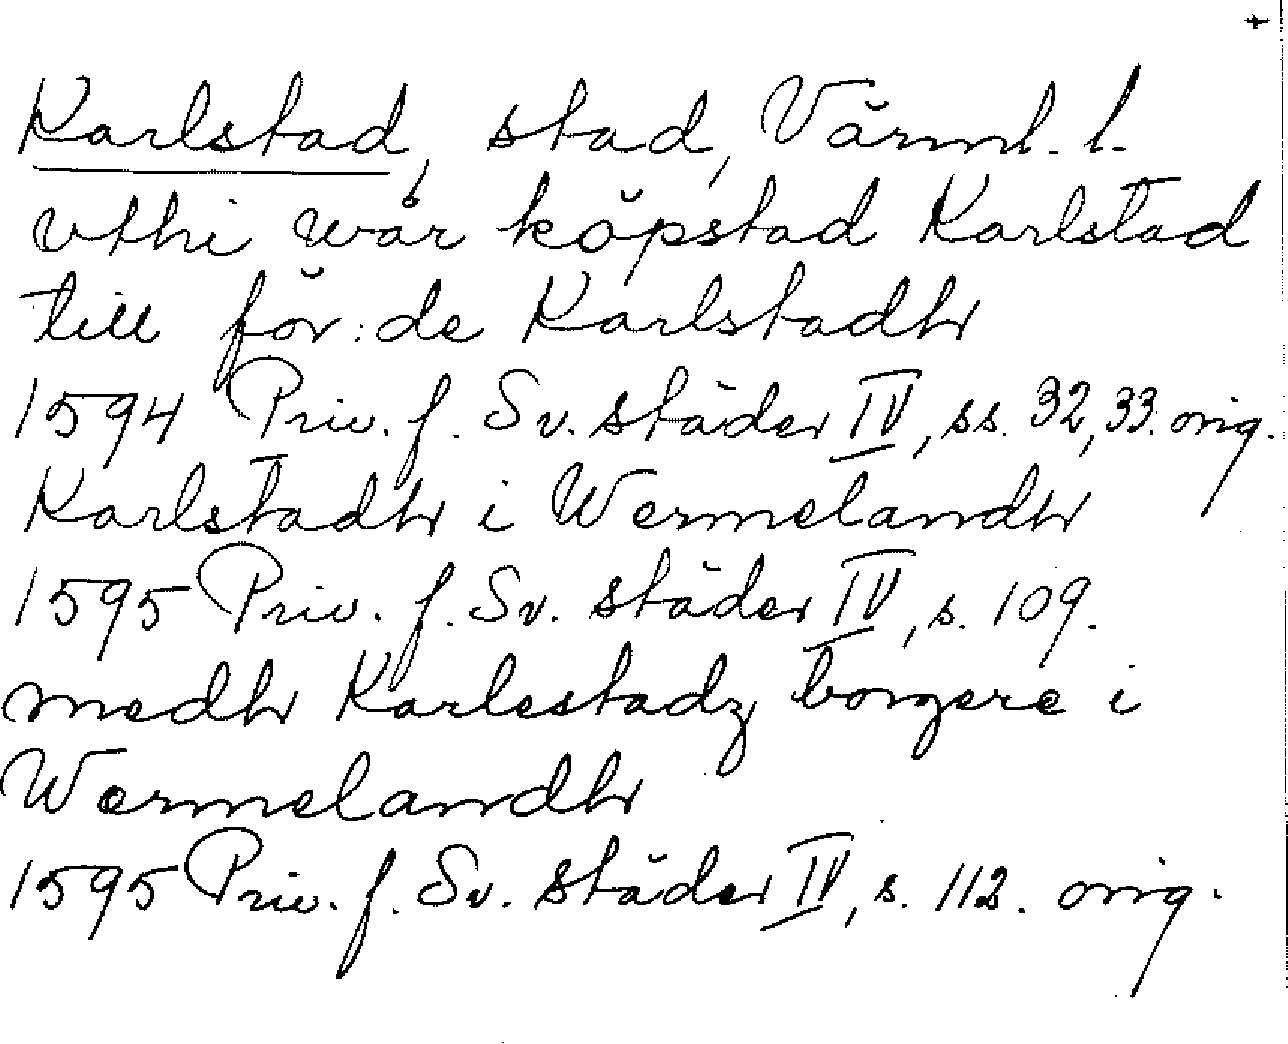 Karlstad, stad, Värml. l.
vthi wår köpstad Karlstad
till för:de Karlstadh
1594 Priv. f. Sv. städer IV, ss. 32, 33. orig.
Karlstadh i Wermelandh
1595 Priv. f. Sv. städer IV, s. 109.
medh Karlestadz borgere i
Wermelandh
1595 Priv. f. Sv. städer IV, s. 112. orig.